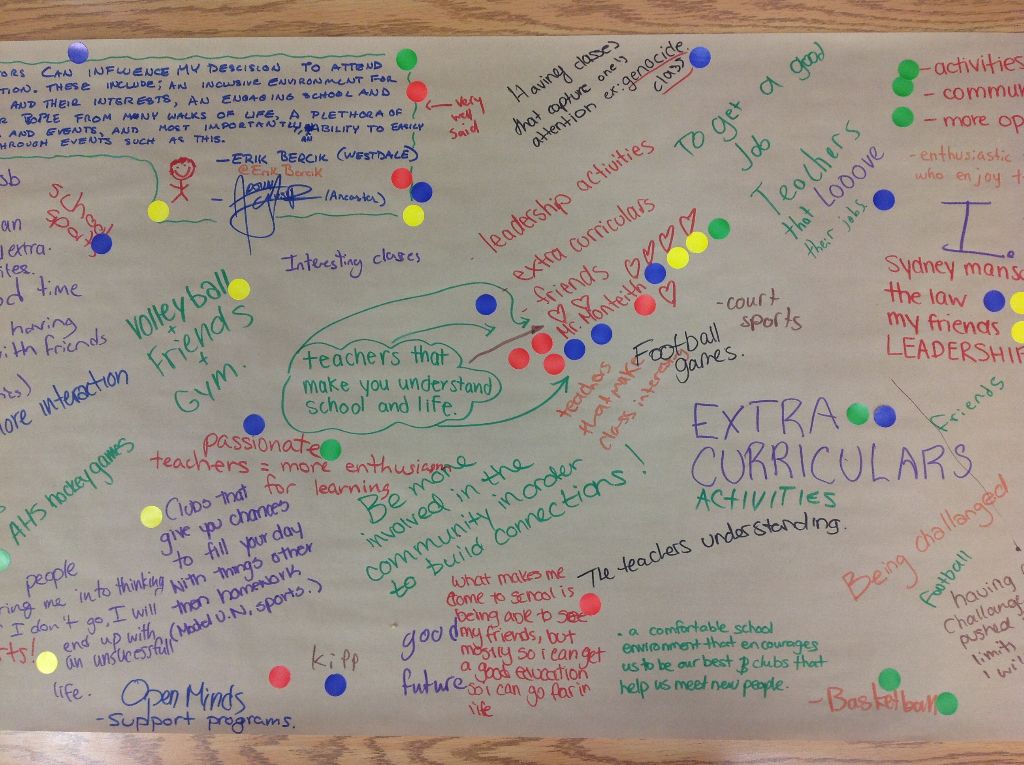 ORS CAN INFLUENCE MY DESCISION TO ATTEND
TION. THESE INCLUDE; AN INCLUSIVE ENVIRONMENT FOR
AND THEIR INTERESTS, AN ENGAGING SCHOOL AND
PEOPLE FROM MANY WALKS OF LIFE, A PLETHORA OF
AND EVENTS, AND MOST IMPORTANTLY, AN ABILITY TO EASILY
THROUGH EVENTS SUCH AS THIS.
very
well
said
- ERIK BERCIK (WESTDALE)
@Erik Bercik
- (Ancaster)
school
sports
an
extra.
time
having
with friends
more interaction
Interesting classes
Volleyball
+
Friends
+
Gym.
Having classes
that capture one's
attention ex: genocide
class
To get a good
job
Teachers
that LOOOVE
their jobs.
- activities
- commun
- more op
- enthusiastic
who enjoy t
I.
Sydney manso
the law
my friends
LEADERSHIP
leadership activities
- extra curriculars
- friends
Mr. Monteith
- court
sports
Football
games.
teachers that
make you understand
school and life.
teachers
that make
class interesting
EXTRA
CURRICULARS
ACTIVITIES
Friends
passionate
teachers = more enthusiasm
for learning
AHS hockey games
Be more
involved in the
community in order
to build connections!
Clubs that
give you chances
to fill your day
with things other
then homework
(Model U.N, sports.)
people
me into thinking
I don't go, I will
end up with
an unsucessfull
life.
The teachers understanding.
Being challanged
Football
having
Challang
pushed
limits
I wil
what makes me
come to school is
being able to see
my friends, but
mostly so i can get
a good education
so i can go far in
life
good
future
kipp
Open Minds
- Support programs.
. a comfortable school
environment that encourages
us to be our best & clubs that
help us meet new people.
- Basketball